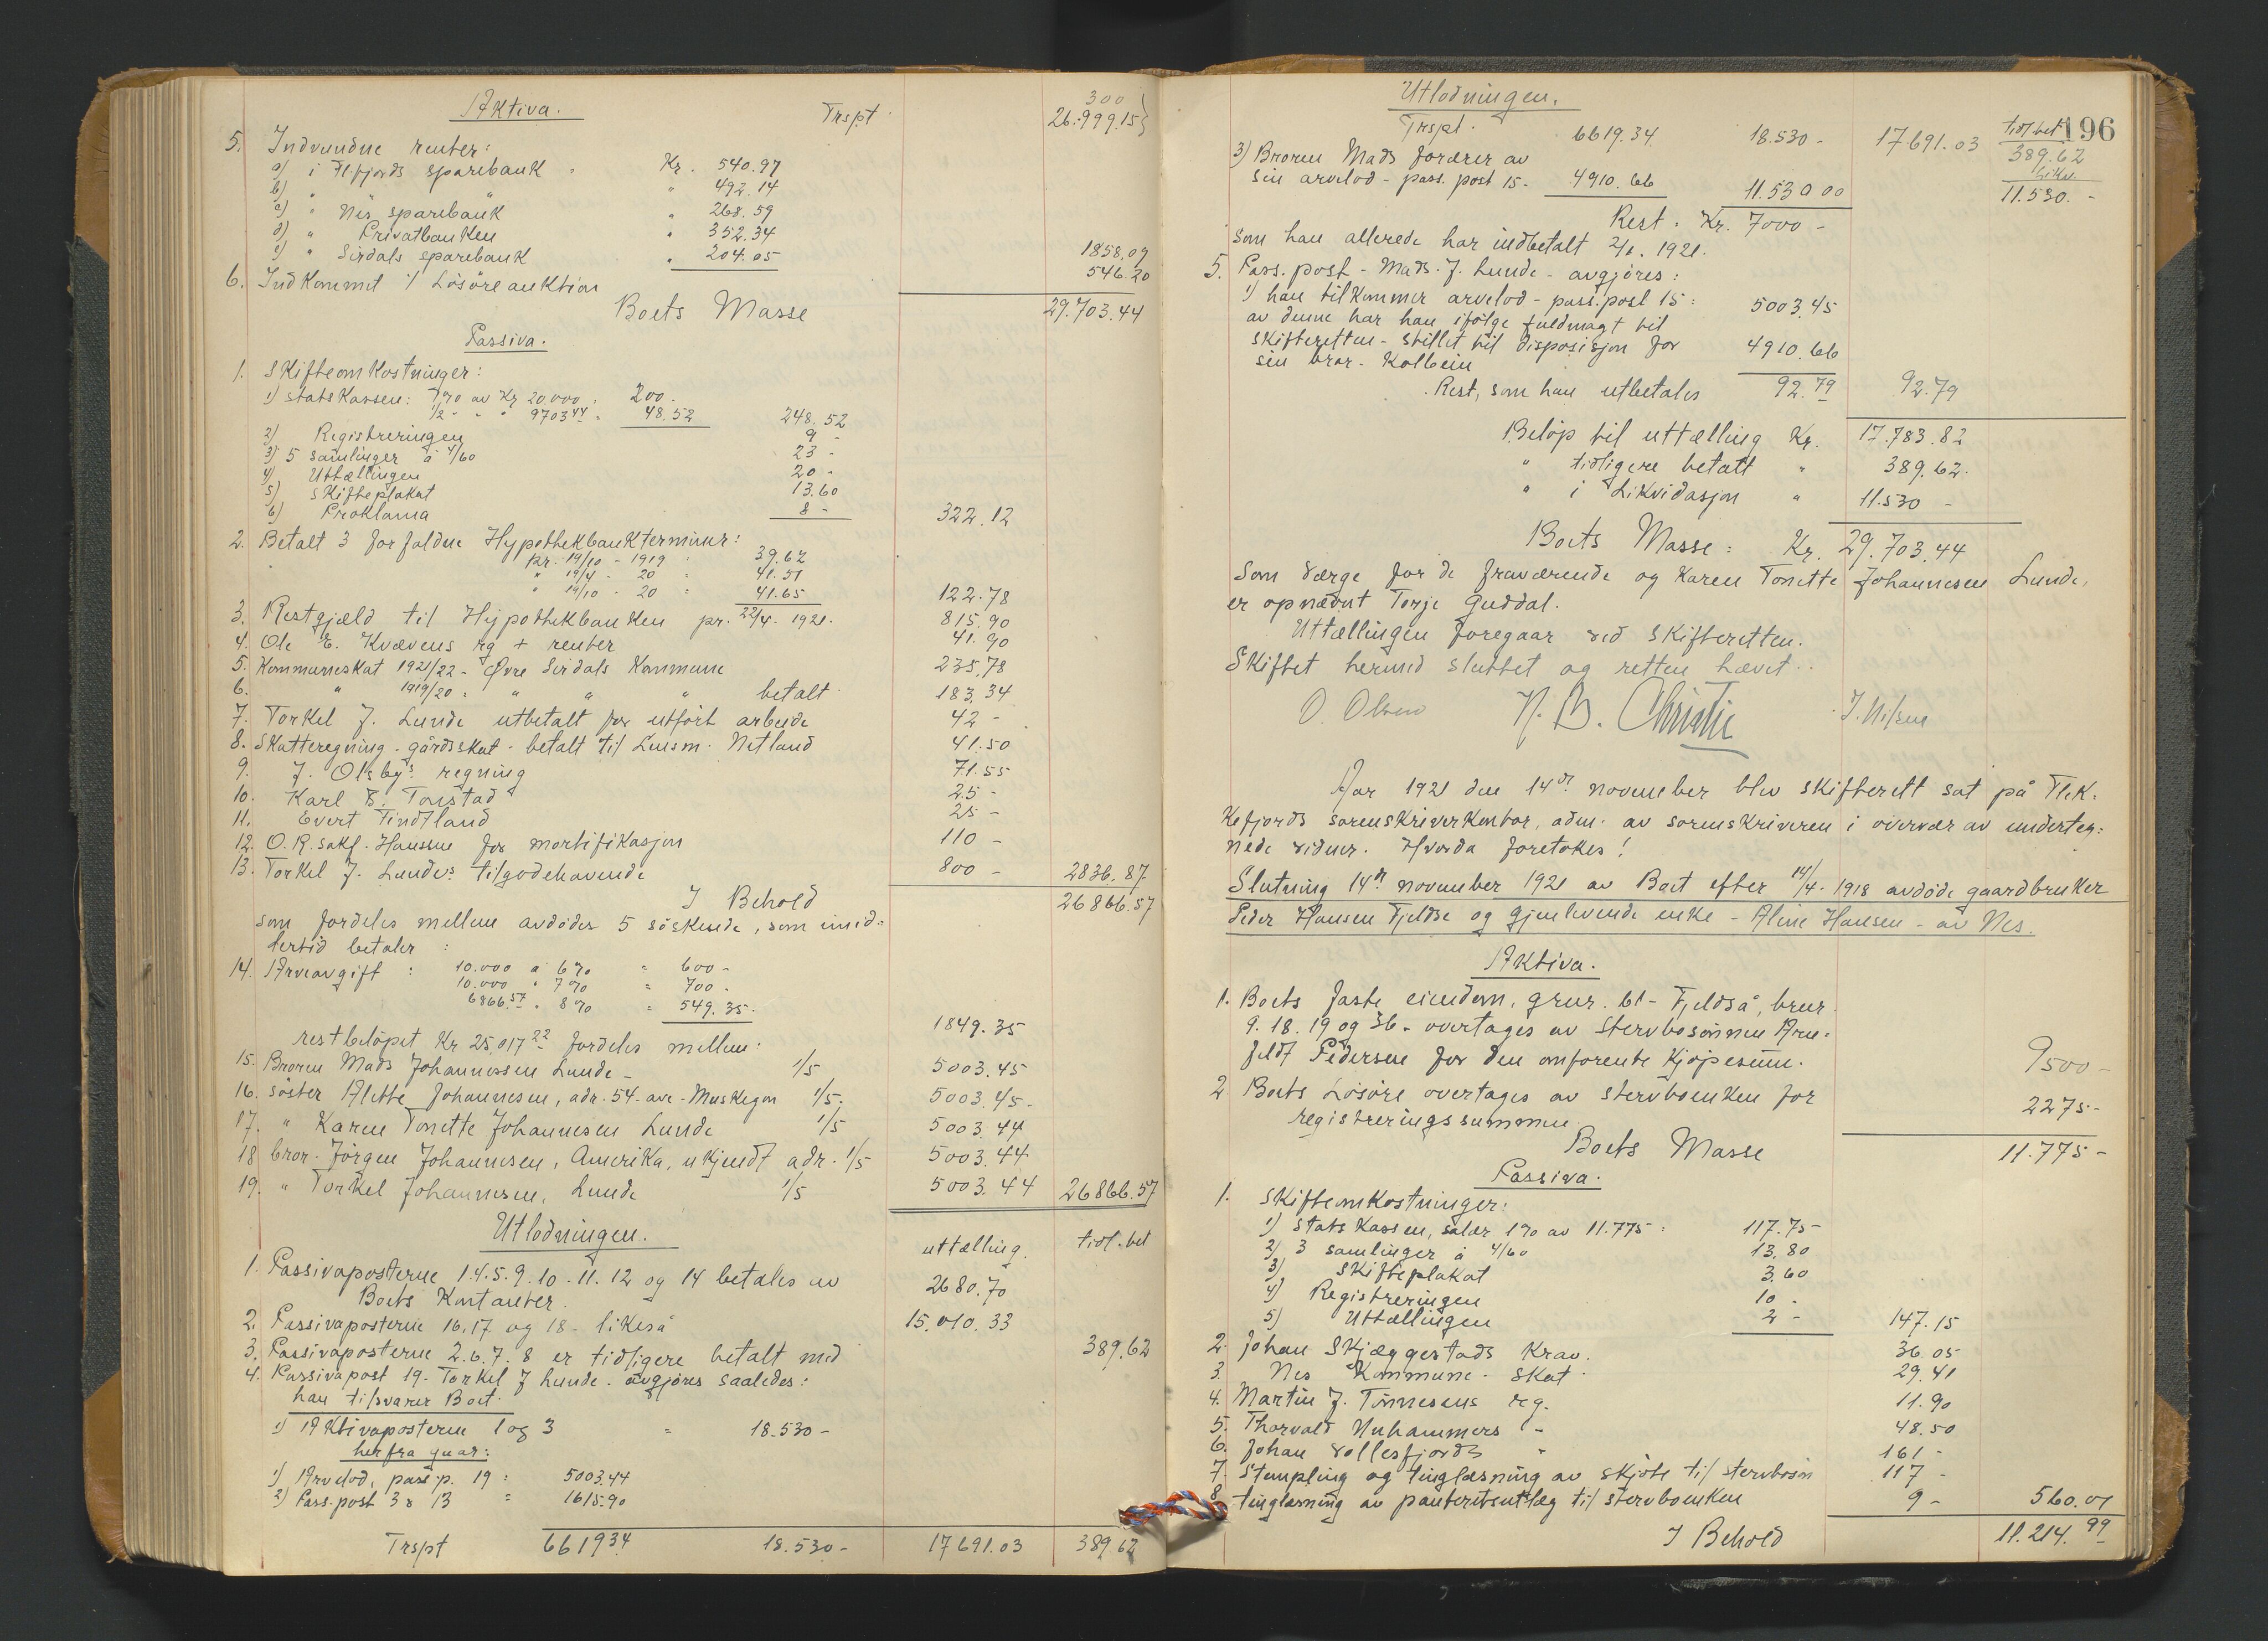 Aktiva.
Trspt.
300
26.999.15
5. Indvundne renter:
a) i Fl.fjords sparebank - Kr. 540.97
b) " " " " 492.14
c) " Nes sparebank " 268.59
d) " Privatbanken " 352.34
e) " Sirdals sparebank " 204.05 1858.09
6. Indkommet v/ Lösöreauktion 546.20
Boets Masse 29.703.44
Passiva.
1. Skifteomkostninger:
1) Statskassen: 1% av Kr 20.000. 200.-
1/2 - " " 9703 44 = 48.52 248.52
2) Registreringen 9 -
3) 5 samlinger à 4/60 23 -
4) Uttællingen 20 -
5) Skifteplakat 13.60
6) Proklama 8 - 322.12
2. Betalt 3 forfaldne Hypothekbankterminer:
pr. 19/10 - 1919 39.62
" 19/4 - 20 = 41.51
" 19/10 - 20 = 41.65 122.78
3. Restgjæld til Hypothekbanken pr. 22/4. 1921. 815.90
4. Ole E. Kvævens rg + renter 41.90
5. Kommuneskat 1921/22 - Øvre Sirdals Kommune 235.78
6. " 1919/20 = " " " betalt 183.34
7. Torkel J. Lunde utbetalt for utfört arbeide 42 -
8. Skatteregning - gårdsskat - betalt til Lensm. Netland 41.50
9. J. Olsbys regning 71.55
10. Karl B. Tonstad 25 -
11. Evert Findtland 25 -
12. O.R. sakf. Hanssen for mortifikasjon 110 -
13. Torkel J. Lundes tilgodehavende 800 - 2836.87
I Behold 26866.57
som fordeles mellem avdödes 5 söskende, som imid=
lertid betaler :
14. Arveavgift : 10.000 à 6% = 600 -
10.000 " 7% = 700 -
6866.57 " 8% = 549.35. 1849.35
restbelöpet Kr 25.017 22 fordeles mellem:
15. Broren Mads Johannessen Lunde - 1/5 5003.45
16. söster Alette Johannesen, adr. 54- ave - Muskegon 1/5. 5003.45 -
17. " Karen Tonette Johannesen Lunde 1/5 5003.44
18 bror - Jörgen Johannesen, Amerika, ukjendt adr. 1/5 5003.44
19. " Torkel Johannesen, Lunde 1/5 5003.44 26866.57
Utlodningen.
uttælling. tidl. bet
1. Passivaposterne 1.4.5.9.10.11.12 og 14 betales av
Boets Kontanter. 2680.70
2. Passivaposterne 16.17 og 18 - likeså 15.010.33
3. Passivaposterne 2.6.7.8 er tidligere betalt med 389.62
4. Passivapost 19 - Torkel J Lunde - avgjöres saaledes:
han tilsvarer Boet.
1) Aktivaposterne 1 og 3 = 18.530 -
herfra gaar:
1) Arvelod, pass.p. 19 = 5003.44
2) Pass.post 3 & 13 = 1615.90
Trspt 6619 34 18.530 - 17691.03 389.62
Utlodningen.
196
Trspt. 6619.34 18.530 - 17691.03 tidl. bet 389.62
3) Broren Mads forærer av
sin arvelod - pass. post 15 - 4910.66 11.530 00 Likv. 11.530. -
Rest. Kr. 7000 -
som han allerede har indbetalt 2/6. 1921.
5. Pass. post - Mads J. Lunde - avgjöres:
1) han tilkommer arvelod - pass. post 15 : 5003.45
av denne har han ifölge fuldmagt til
skifteretten - stillet til disposisjon for
sin bror - Kolbein 4910.66
Rest, som han utbetales 92.79 92.79
Belöp til uttælling Kr. 17.783.82
" tidligere betalt " 389.62.
" i Likvidasjon " 11.530 -
Boets Masse = Kr. 29.703.44
Som værge for de fraværende og Karen Tonette Johannesen Lunde,
er opnævnt Torje Guddal.
Uttællingen foregaar ved skifteretten.
Skiftet hermed sluttet og retten hævet.
O. Olsen N. B. Christie J. Nilsen
Aar 1921 den 14de november blev skifterett sat på Flek=
kefjords sorenskriverkontor, adm. av sorenskriveren i overvær av underteg=
nede vidner. Hvorda foretokes!
Slutning 14de november 1921 av Boet efter 14/4. 1918 avdöde gaardbruker
Peder Hansen Fjeldse og gjenlevende enke - Aline Hansen - av Nes.
Aktiva.
1. Boets faste eiendom, grnr. 61 - Fjeldså, brnr.
9. 18. 19 og 36 - overtages av stervbosönnen Arn=
feldt Pedersen for den omforente kjöpesum. 9500 -
2 Boets Lösöre overtages av stervboenken for
registreringssummen 2275 -
Boets Masse 11.775 -
Passiva.
1. Skifteomkostninger:
1) Statskassen, salær 1% av 11.775 : 117.75 -
2) 3 samlinger à 4/60 13.80
3) Skifteplakat 3.60
4) Registreringen 10 -
5) Uttællingen 2 - 147.15
2. Johan Skjæggestads Krav. 36.05
3. Nes Kommune - Skat. 29.41
4. Martin J. Tönnesens rg. 11.90
5. Thorvald Nuhammers " 48.50
6. Johan Vollesfjords " 161 -
7. Stempling og tinglæsning av skjöte til stervbosön 117 -
8. tinglæsning av panteretsutlæg til stervboenken 9 - 560.01
I Behold 11.214.99